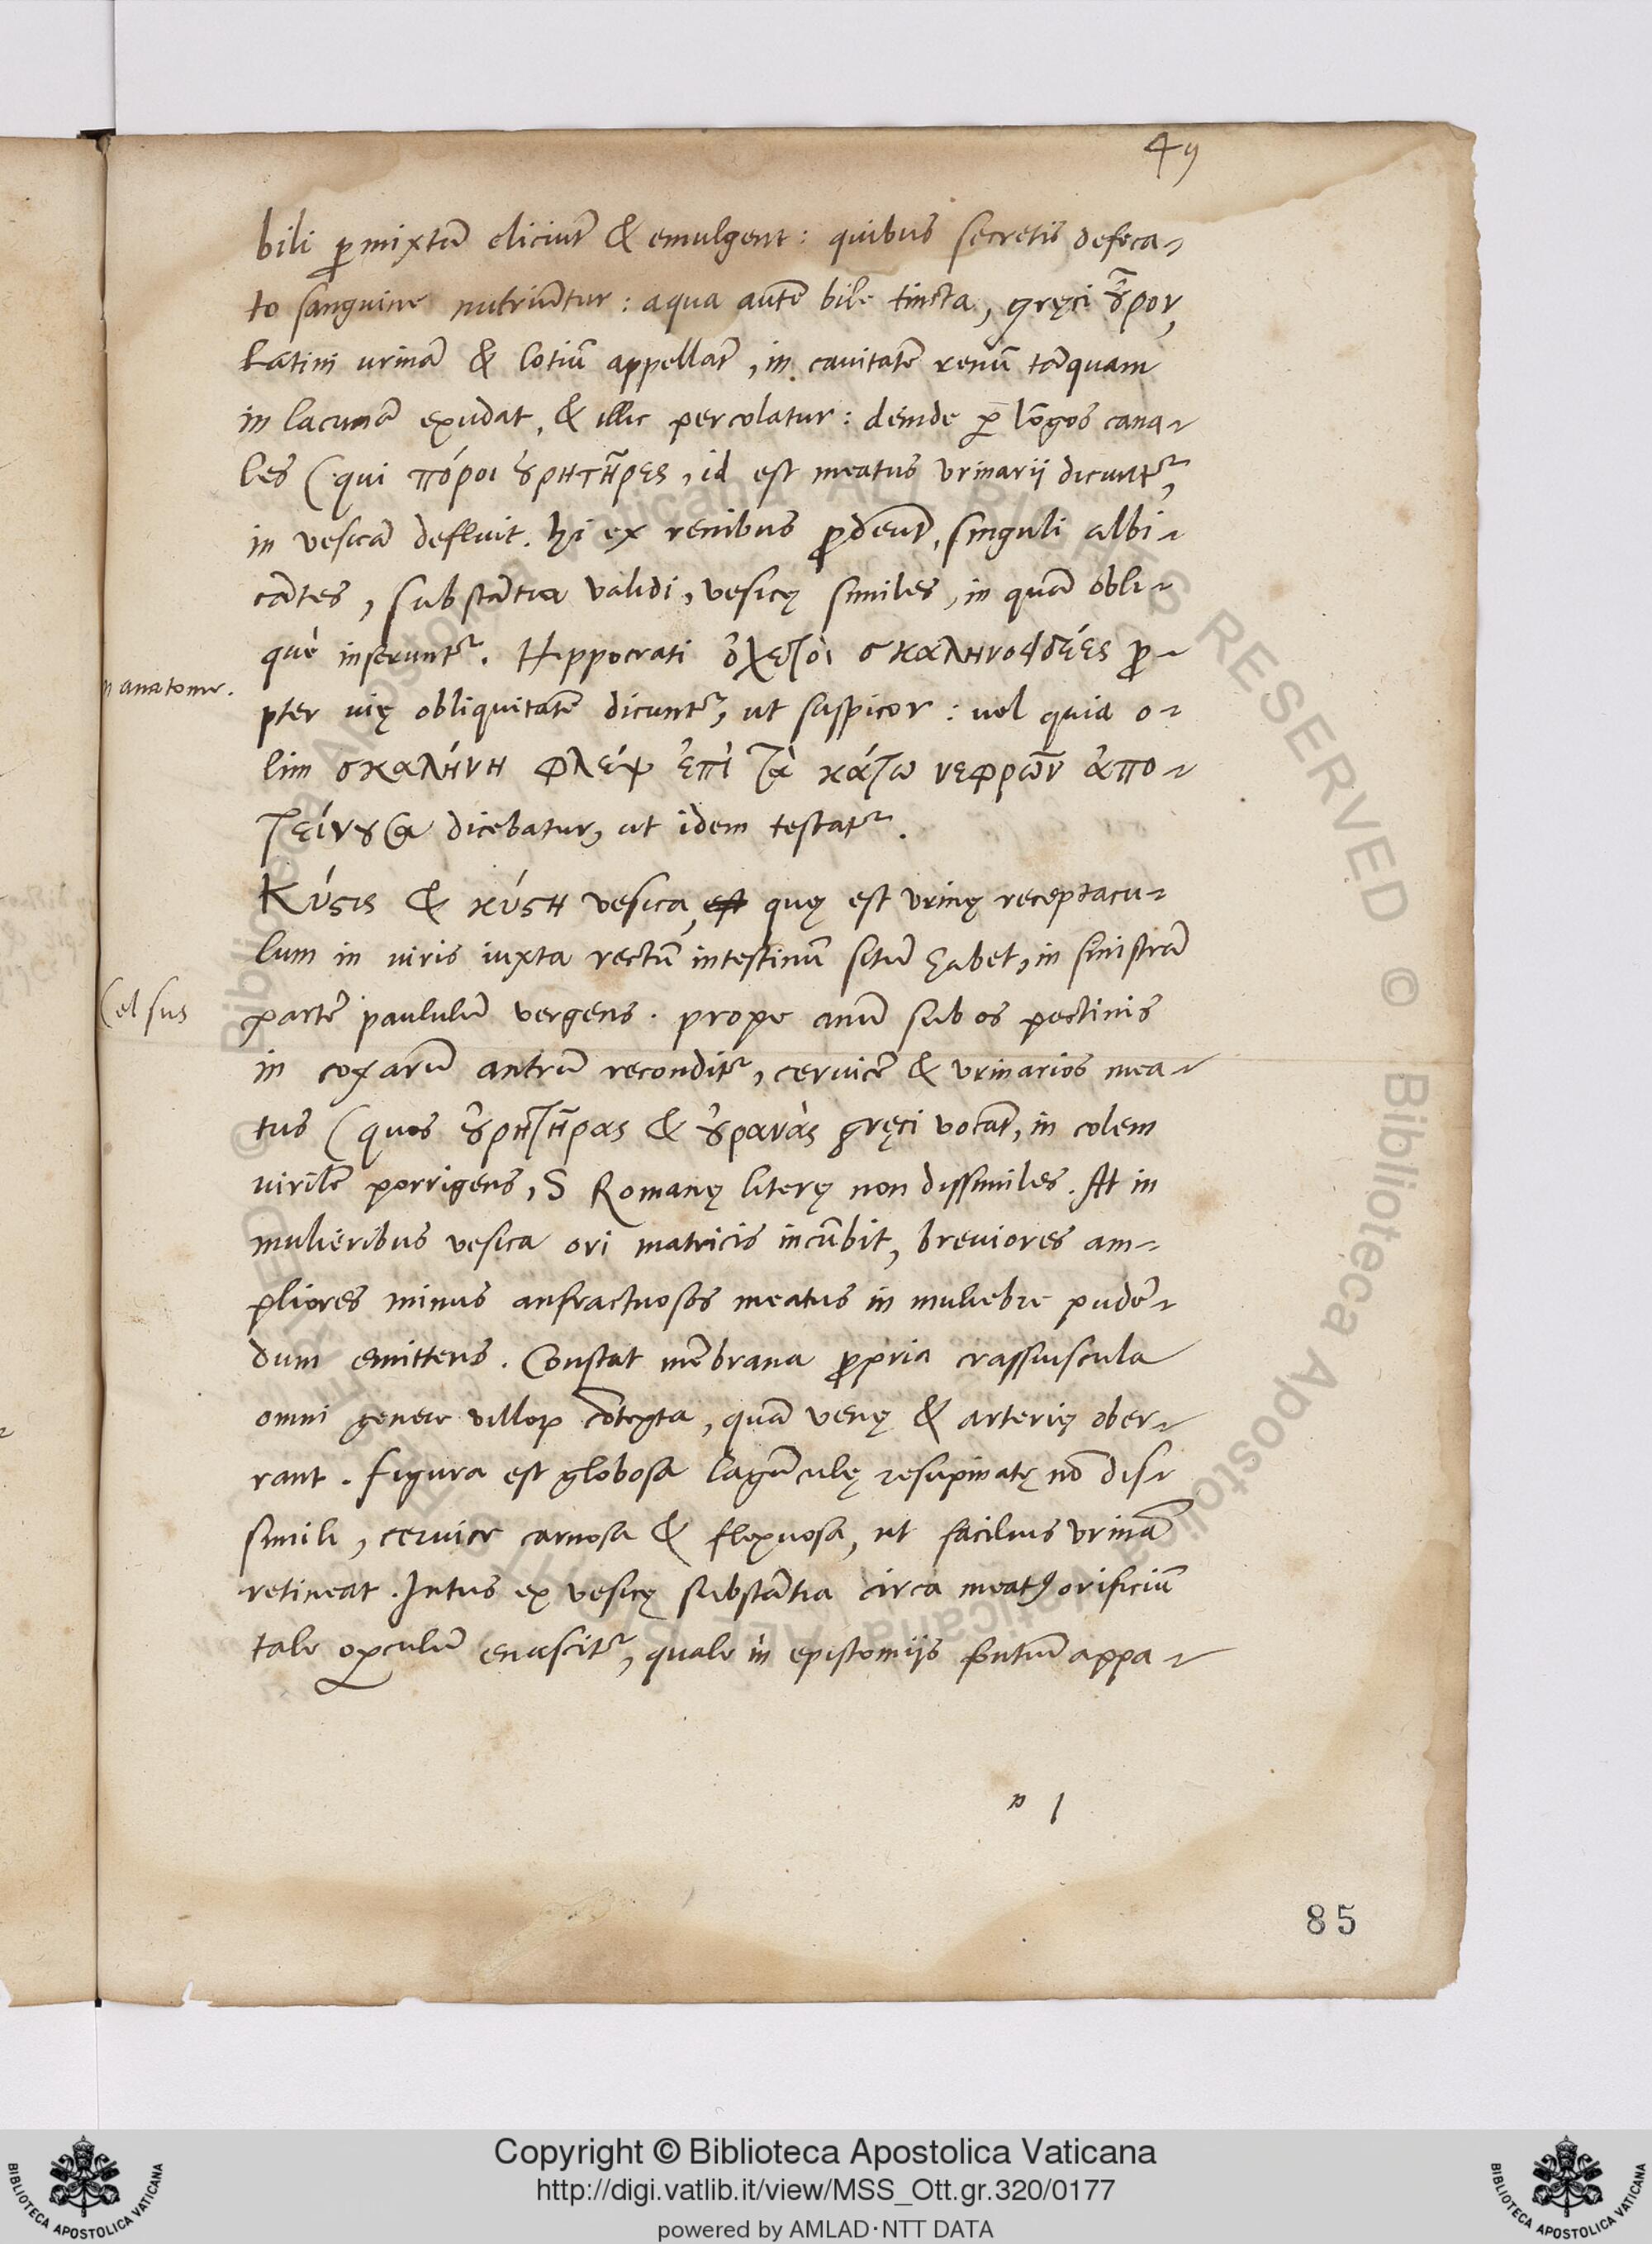 49
bili ꝑmixtũ eliciũt & emulgent: quibus secretis defeca-
to sanguine nutriũtur: aqua autẽ bile tincta, gręci ȣ̃ρον,
Latini urinã & lotiũ appellãt, in cauitatẽ renũ tãquam
in lacunã exudat, & illic percolatur: deinde ꝑ lõgos cana-
les (qui πόροι ȣρητῆρες, id est meatus urinarii dicunt᷑,
in vesicã defluit. hi ex renibus ꝓdeũt, singuli albi-
cãtes, substãtia validi, vesicę similes, in quã obli-
què inserunt᷑. Hippocrati ὀχετοὶ σκαληνοειδέες ꝓ-
n anatome.
pter uię obliquitatẽ dicunt᷑, ut suspicor: uel quia o-
lim σκαλήνη φλέψ ἐπὶ τὰ κάτω νεφρῶν ἀπο-
τείνȣσα dicebatur, ut idem testat᷑.
Κύςις & κύςη vesica, est quę est urinę receptacu-
lum in viris iuxta rectũ intestinũ sitũ habet, in sinistrã
Celsus
partẽ paululũ vergens. prope anũ sub os pectinis
in coxarũ antrũ recondit᷑, ceruicẽ & urinarios mea-
tus (quos ȣ̓ρητῆρας & ȣ̓ρανὰς gręci vocãt, in colem
virilẽ porrigens, S Romanę literę non dissimiles. At in
mulieribus vesica ori matricis incũbit, breuiores am-
pliores minus anfractuosos meatus in muliebre pudẽ-
dum emittens. Constat mẽbrana ꝓpria crassiuscula
omni genere villoꝝ cõtexta, quã venę & arterię ober-
rant. figura est globosa lagũculę resupinatę nõ dis-
simili, ceruice carnosa & flexuosa, ut facilius urinã
retineat. Intus ex vesicę substãtia circa meatꝰ orificiũ
tale oꝑculũ enascit᷑, quale in epistomijs fõntiũ appa-
n 1
85
Copyright © Biblioteca Apostolica Vaticana
http://digi.vatlib.it/view/MSS_Ott.gr.320/0177
powered by AMLAD·NTT DATA
BIBLIOTECA APOSTOLICA VATICANA
BIBLIOTECA APOSTOLICA VATICANA